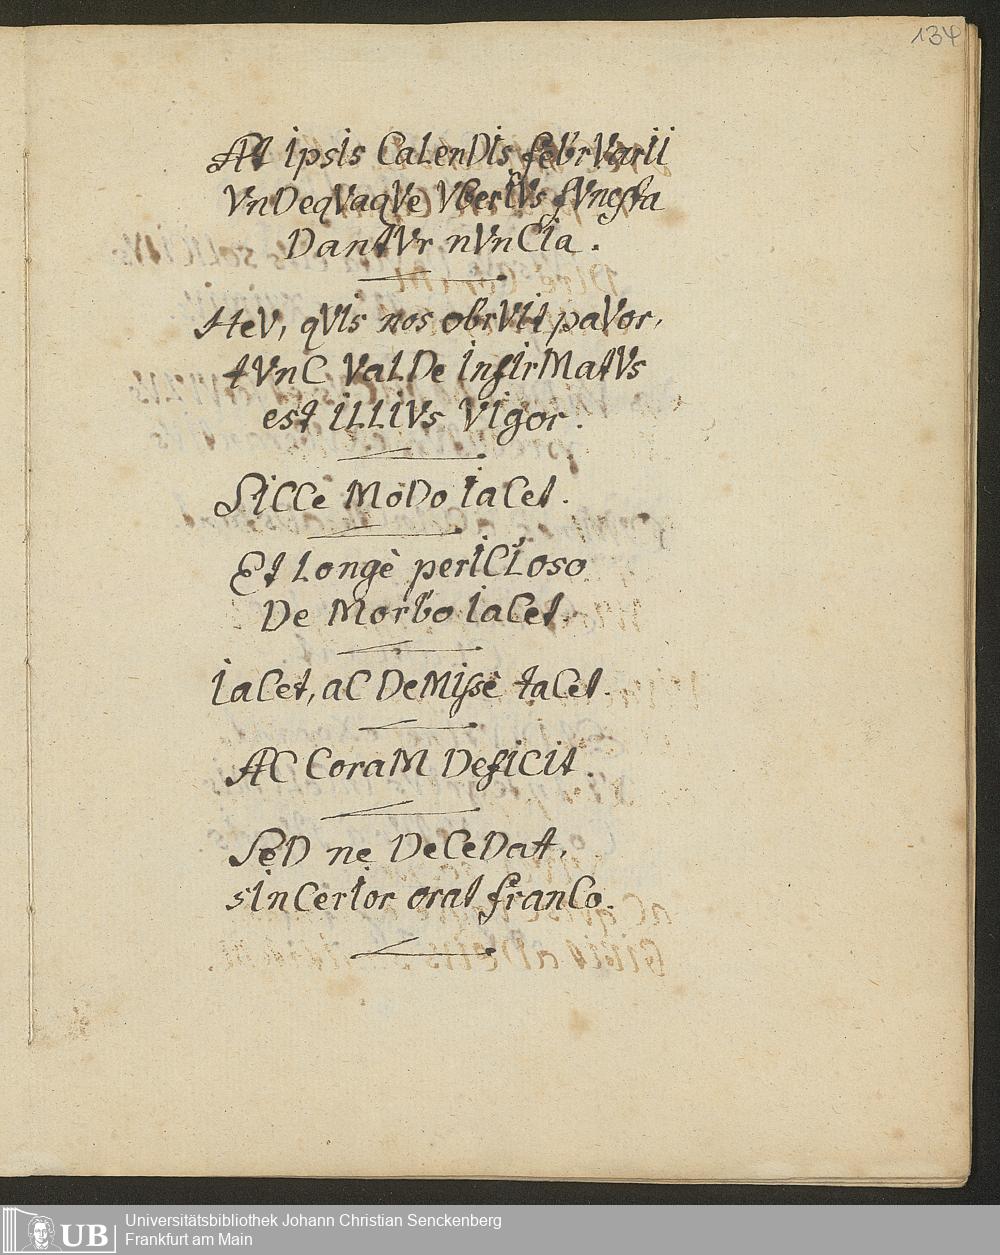 134
At ipsIs CaLenDIs febrVarii
VnDeqVaqVe VberIVs fVnesta
DantVr nVnCIa.
HeV, qVIs nos obrVIt paVor,
tVnC VaLDe InfIrMatVs
est iLLIVs VIgor.
SiCCe MoDo IaCet.
Et Longè perICLoso
De Morbo IaCet.
IaCet, aC DeMIssè taCet.
AC CoraM DefICit
SeD ne DeCeDat,
sInCerIor orat franCo.
Universitätsbibliothek Johann Christian Senckenberg
Frankfurt am Main
UB